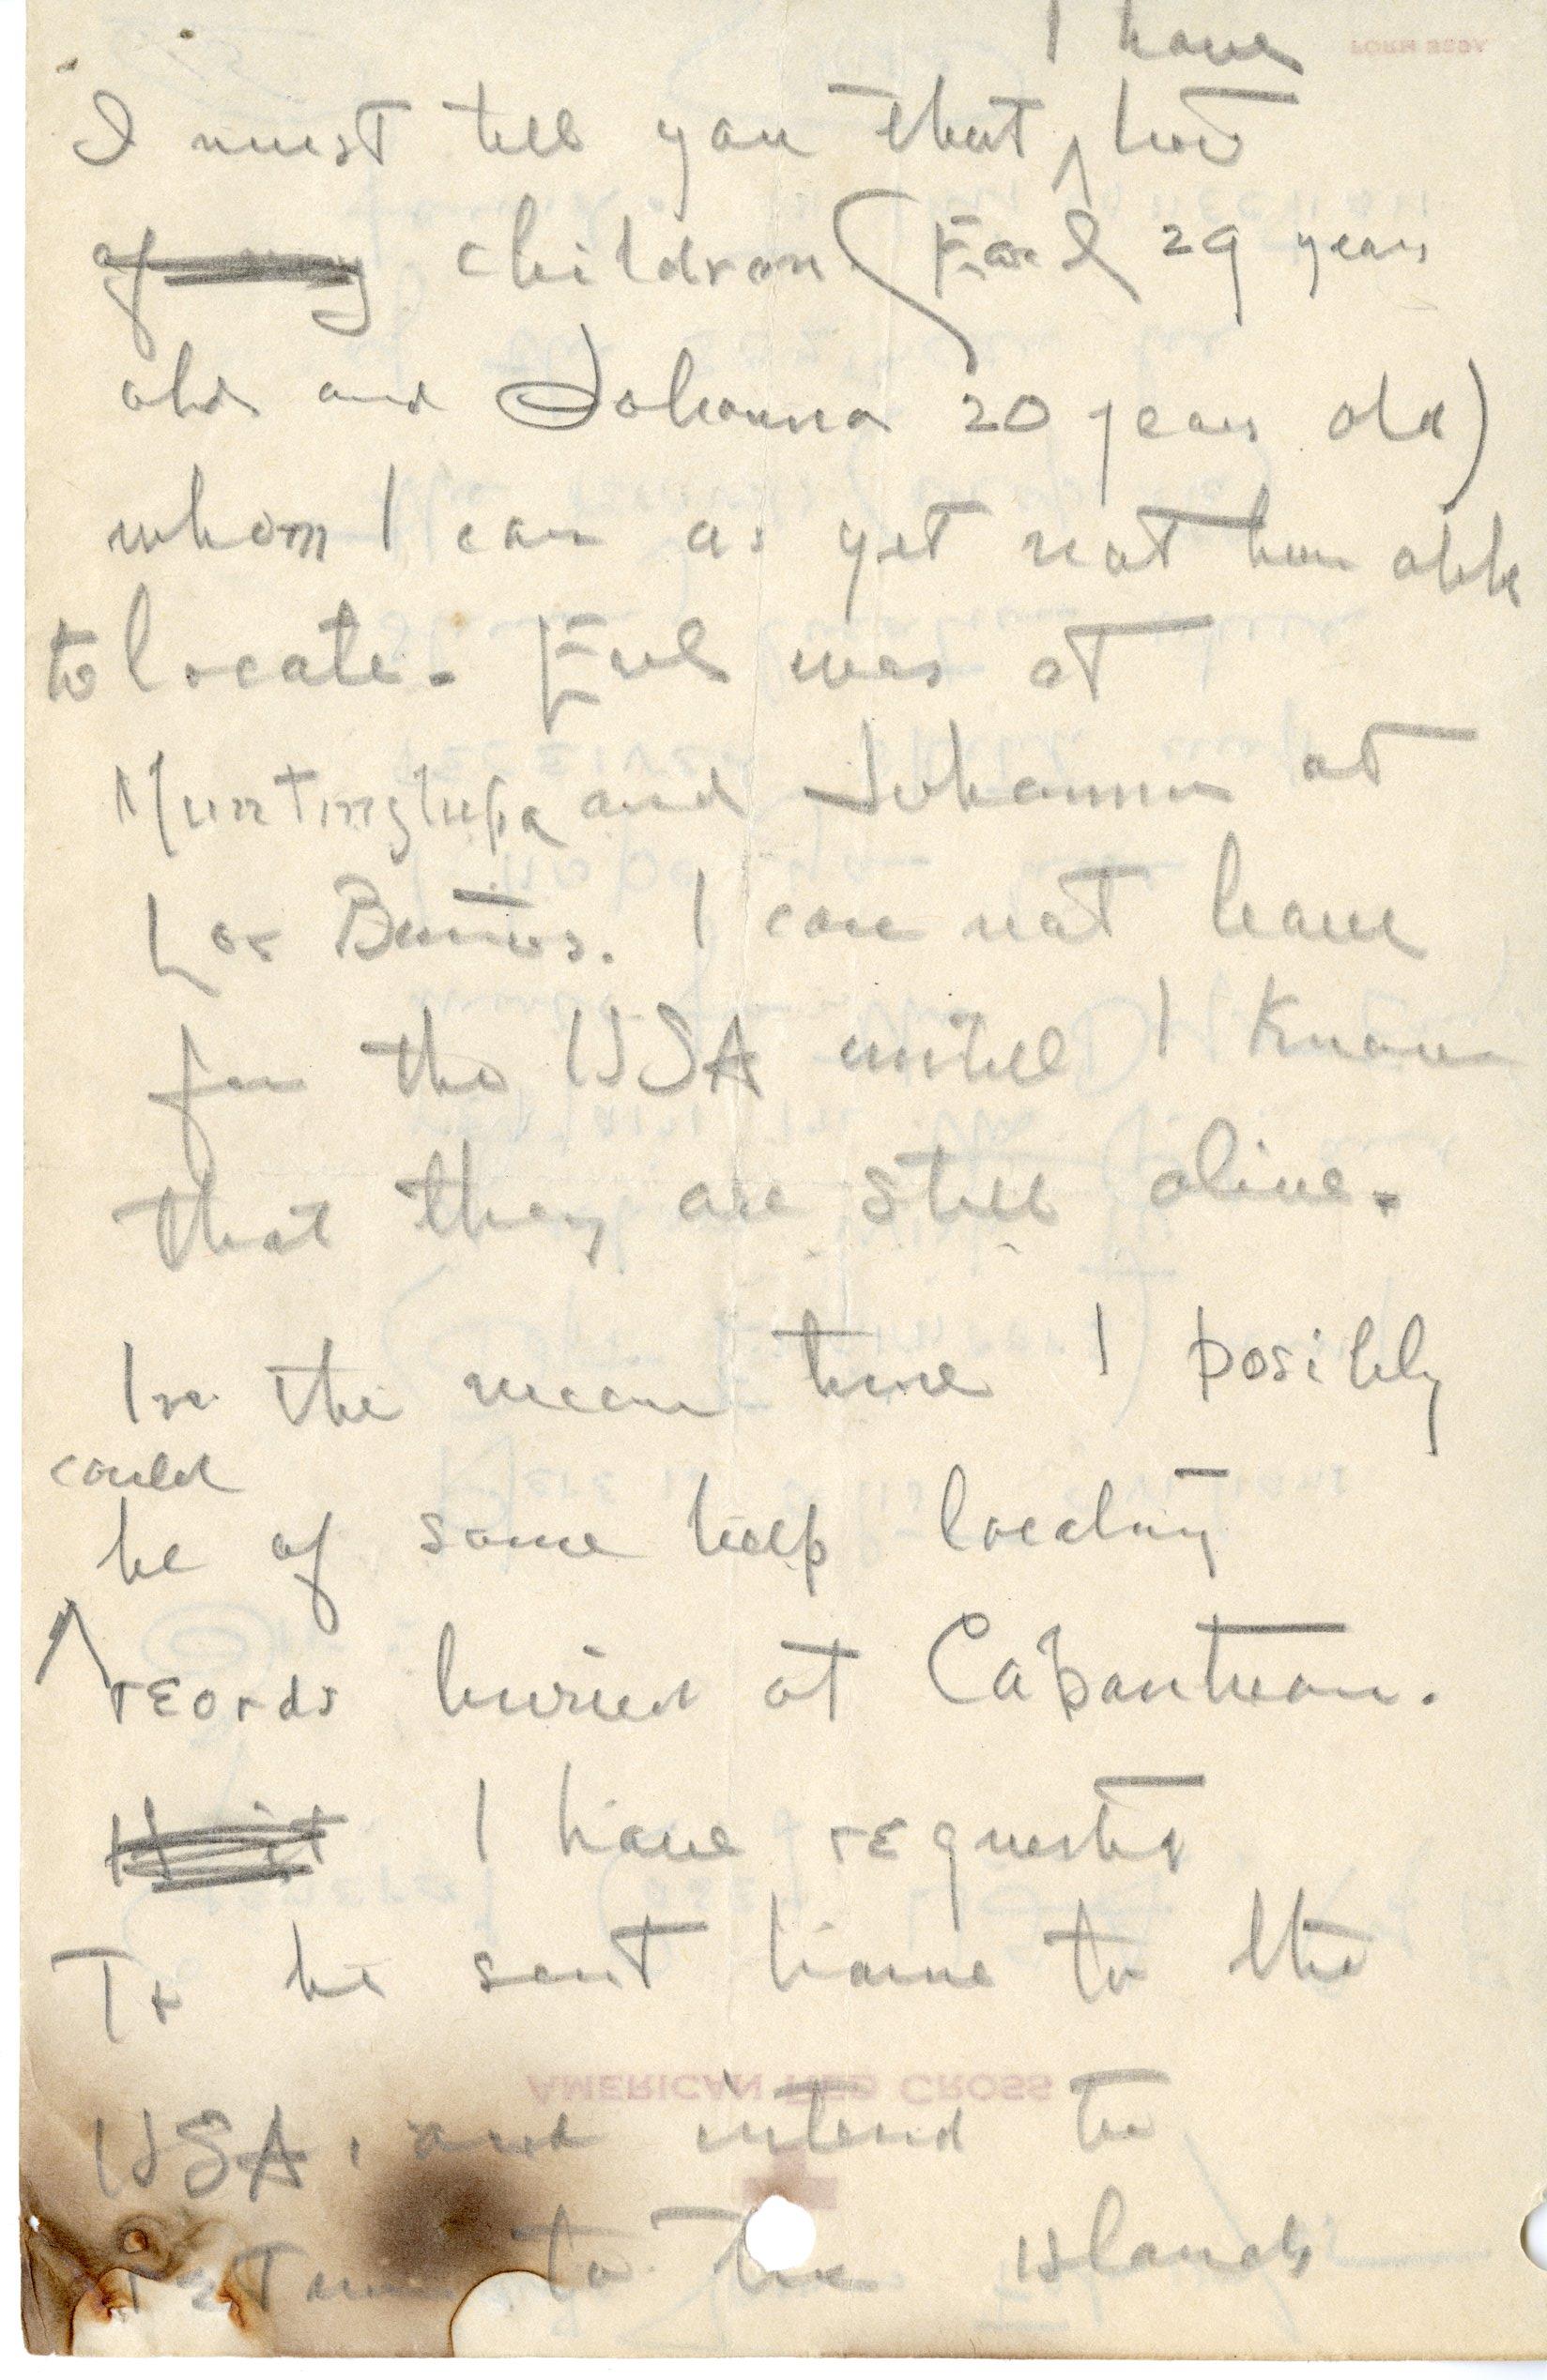 I have
I must tell you that ^ two
of my children (Earl 29 years
old and Johanna 20 years old)
whom I can as yet not been able
to locate. Earl was at
Muntinglupa and Johanna at
Los Banos. I can not leave
for the USA untill I know
that they are still alive.
In the mean time I posibly
could
be of some help locating
^ reords buried at Cabantuan.
I have requested
To be sent home to the
AMERICAN RED CROSS
USA, and intend to
return to the islands